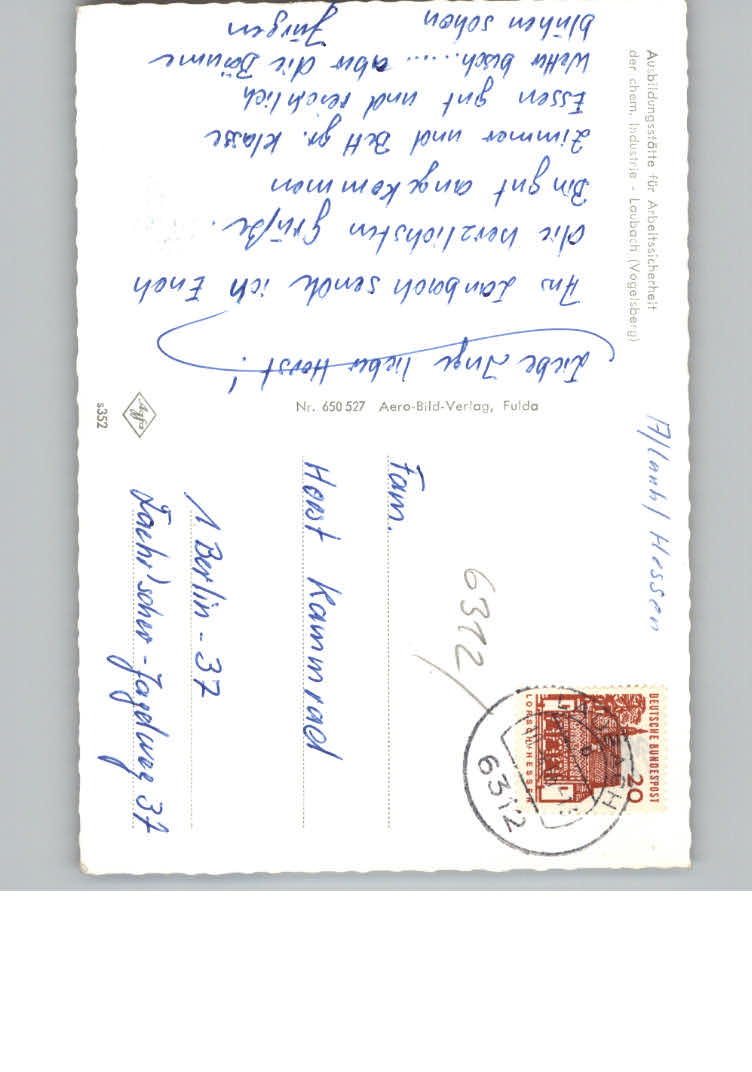 Ausbildungsstätte für Arbeitssicherheit
der chem. Industrie - Laubach (Vogelsberg)
Liebe Inge lieber Horst!
Aus Laubach sende ich Euch
die herzlichsten Grüße.
Bin gut angekommen
Zimmer und Bett gr. Klasse
Essen gut und reichlich
Wetter besch..... aber die Bäume
blühen schon
Jürgen
Nr. 650 527 Aero-Bild-Verlag, Fulda
Agfa
s352
Hessen
6312
DEUTSCHE BUNDESPOST
20
LORSCH/HESSEN
6312
Fam.
Horst Kammrad
1 Berlin - 37
Jagdweg 37